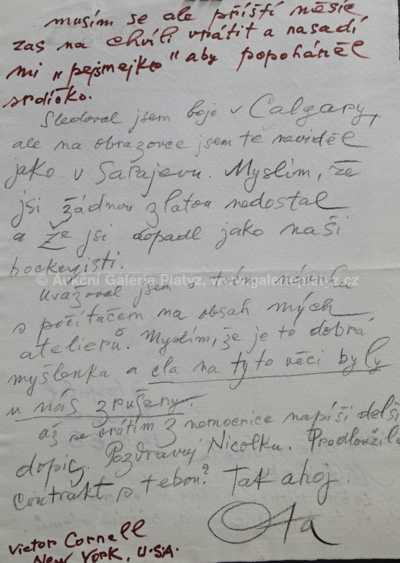 musím se ale příští měsíc
zas na chvíli vrátit a nasadí
mi „pejsmejkr" aby popoháněl
srdíčko.
Sledoval jsem boje v Calgary,
ale na obrazovce jsem tě neviděl
jako v Sarajevu. Myslím, že
jsi žádnou zlatou nedostal
a že jsi dopadl jako naši
hockeyisti.
Uvažoval jsem o tvém návrhu
s počítačem na obsah mých
atelierů. Myslím, že je to dobrá
myšlenka a cla na tyto věci byly
u nás zrušeny.
až se vrátím z nemocnice napíši delší
dopis. Pozdravuj Nicolku. Prodloužila
contrakt s tebou? Tak ahoj.
Ota
Victor Cornell
New York, U.S.A.
© Aukční Galerie Platýz, www.galerieplatyz.cz